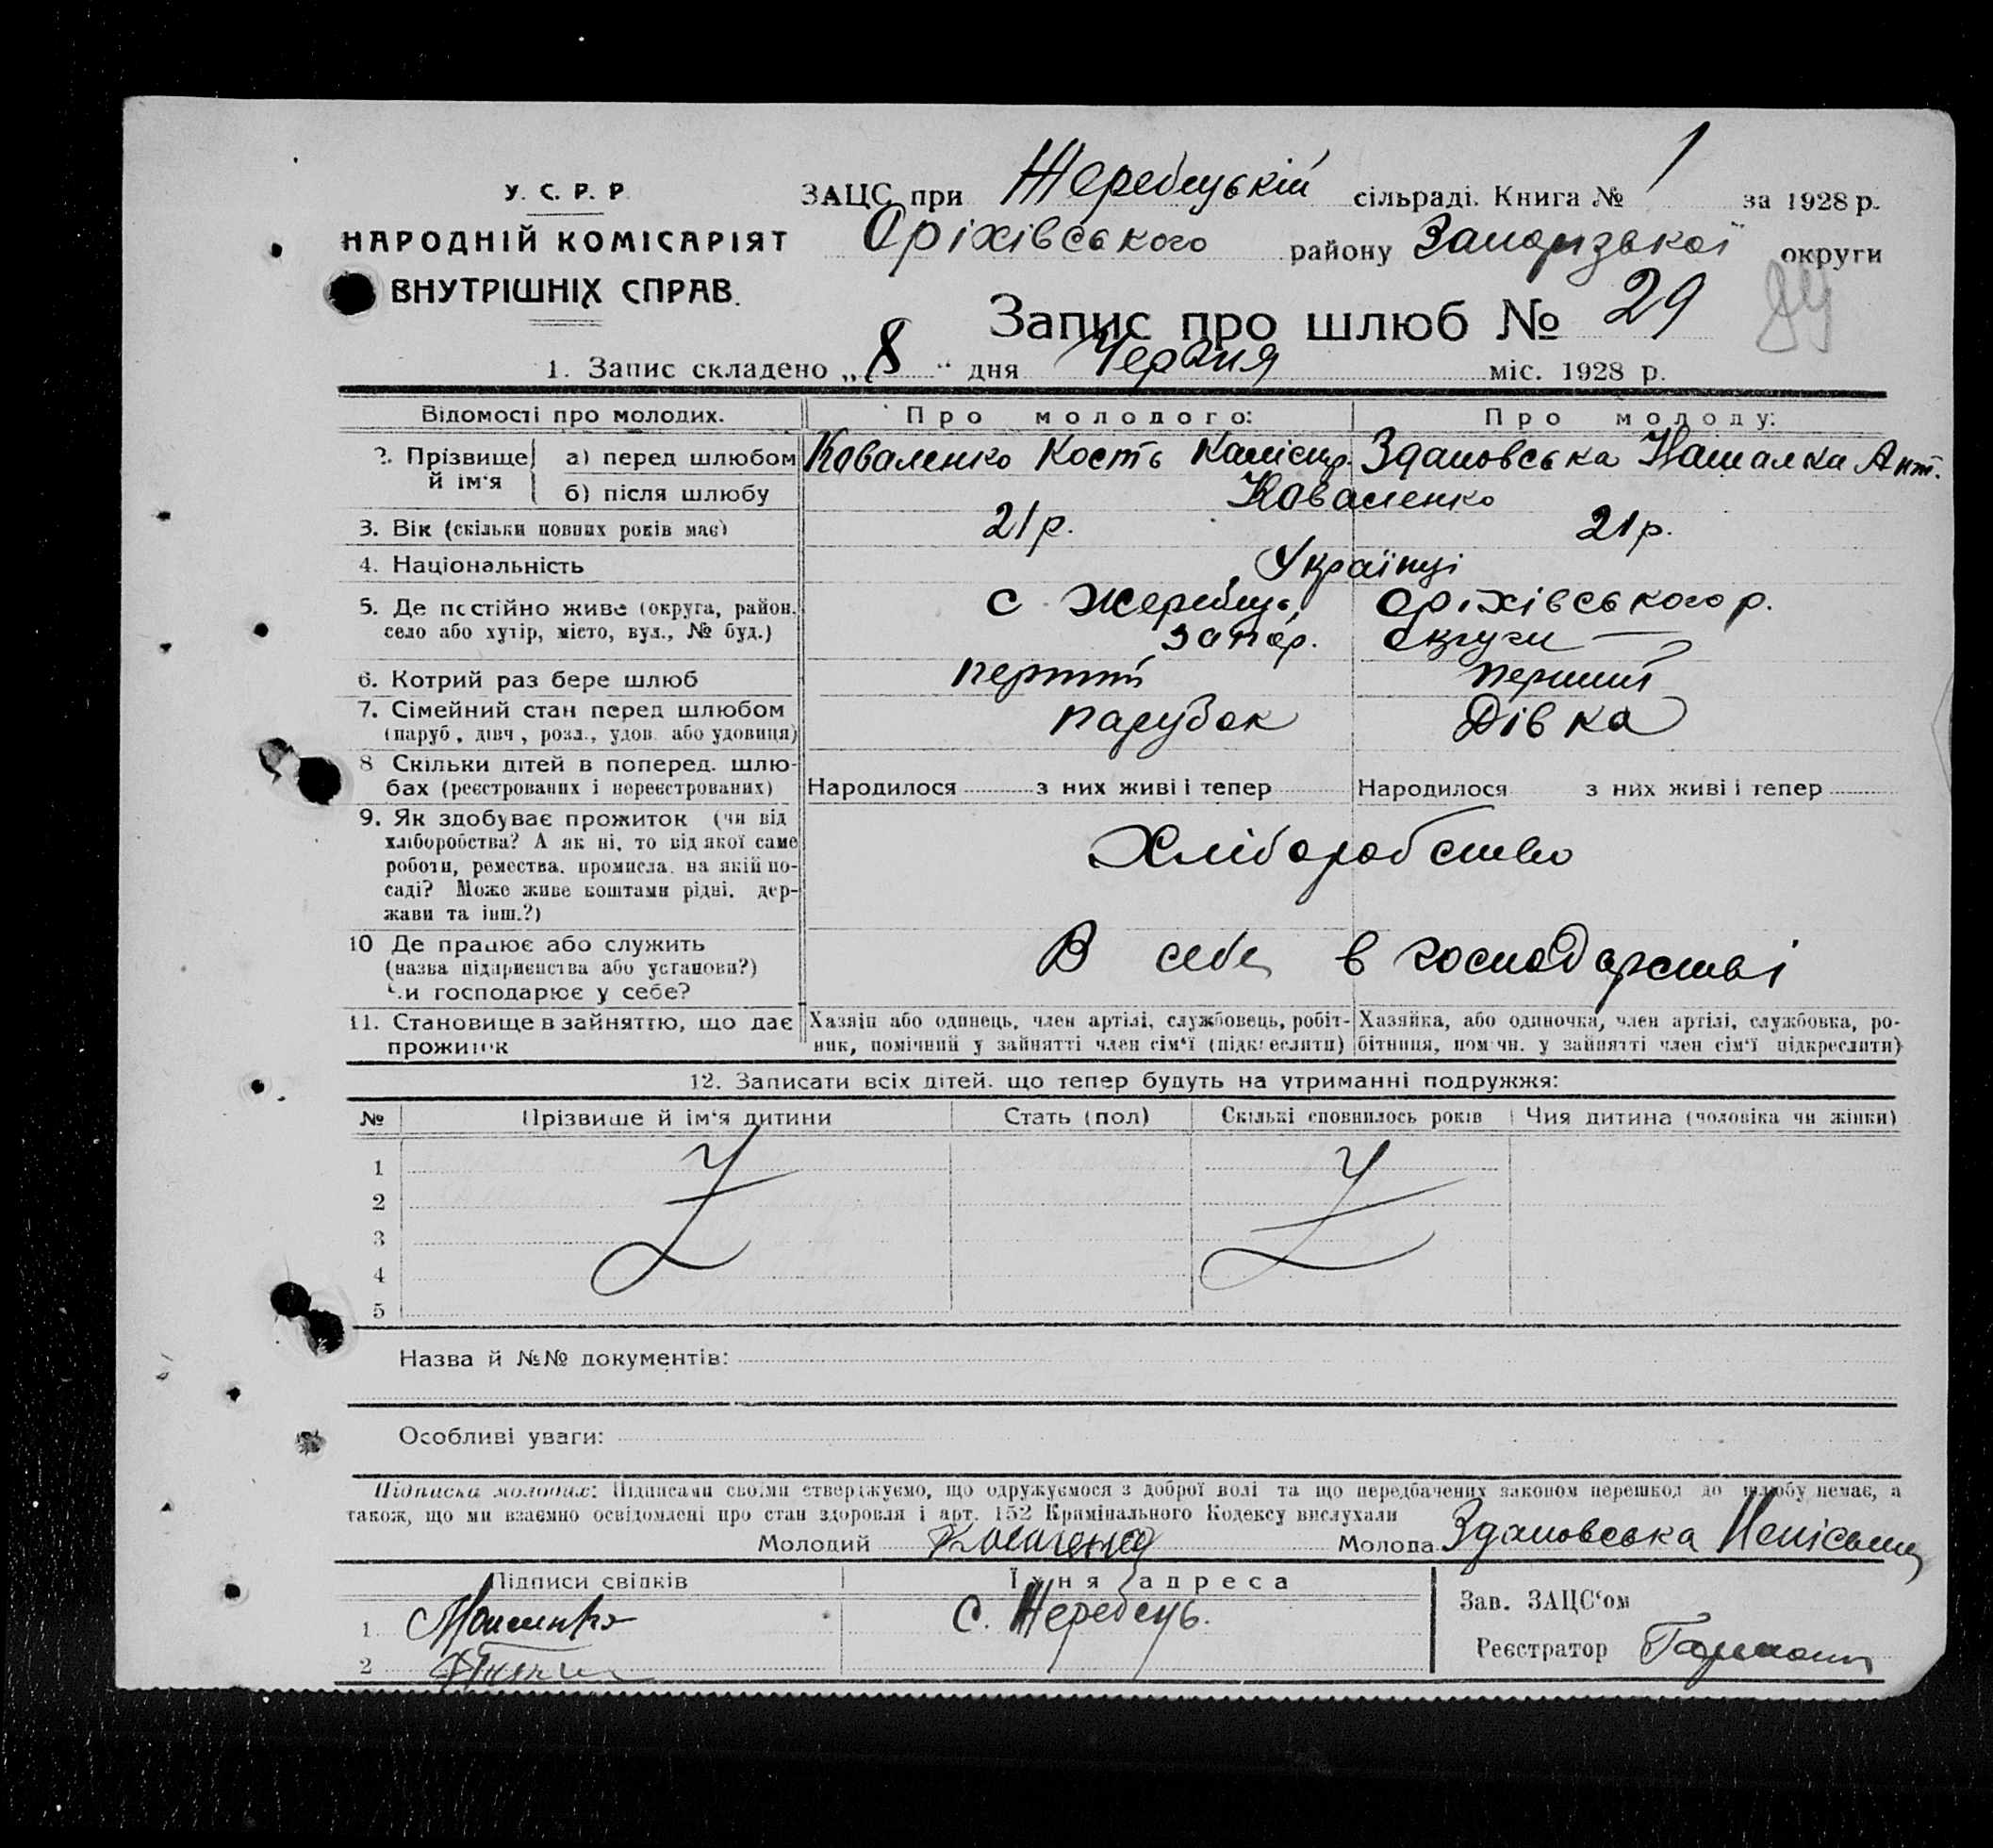 У. С. Р. Р.
НАРОДНІЙ КОМІСАРІЯТ
ВНУТРІШНІХ СПРАВ.
ЗАЦС при Жеребецькій сільраді. Книга № 1 за 1928 р.
Оріхівського району Запорізької округи
Запис про шлюб № 29
1. Запис складено „8“ дня Червня міс. 1928 р.
Відомості про молодих. Про молодого: Про молоду:
2. Прізвище й ім'я а) перед шлюбом Коваленко Кость Здановська Наталка Ант.
б) після шлюбу Коваленко
3. Вік (скільки повних років має) 21 р. 21 р.
4. Національність Українці
5. Де постійно живе (округа, район, с. Жеребець, Оріхівського р.
село або хутір, місто, вул., № буд.) Запор. округи
6. Котрий раз бере шлюб перший перший
7. Сімейний стан перед шлюбом парубок Дівка
(паруб., дівч., розл., удов. або удовиця)
8 Скільки дітей в поперед. шлю-
бах (реєстрованих і нереєстрованих) Народилося з них живі і тепер Народилося з них живі і тепер
9. Як здобуває прожиток (чи від
хліборобства? А як ні, то від якої саме Хліборобство
роботи, ремества, промисла, на якій по-
саді? Може живе коштами рідні, дер-
жави та інш.?)
10 Де працює або служить В себе в господарстві
(назва підприємства або установи?)
Чи господарює у себе?
11. Становище в зайняттю, що дає Хазяїн або одинець, член артілі, службовець, робіт- Хазяйка, або одиночка, член артілі, службовка, ро-
прожиток ник, помічний у зайнятті член сім'ї (підкреслити) бітниця, помічн. у зайнятті член сім'ї підкреслити)
12. Записати всіх дітей, що тепер будуть на утриманні подружжя:
№ Прізвише й ім'я дитини Стать (пол) Скількі сповнилось років Чия дитина (чоловіка чи жінки)
1
2
3
4
5
Назва й №№ документів:
Особливі уваги:
Підписка молодих: Підписами своїми стверджуємо, що одружуємося з доброї волі та що передбачених законом перешкод до шлюбу немає, а
також, що ми взаємно освідомлені про стан здоровля і арт. 152 Кримінального Кодексу вислухали
Молодий Коваленко Молода Здановська
Підписи свідків Їхня адреса Зав. ЗАЦС'ом
1. с. Жеребець.
2 Реєстратор